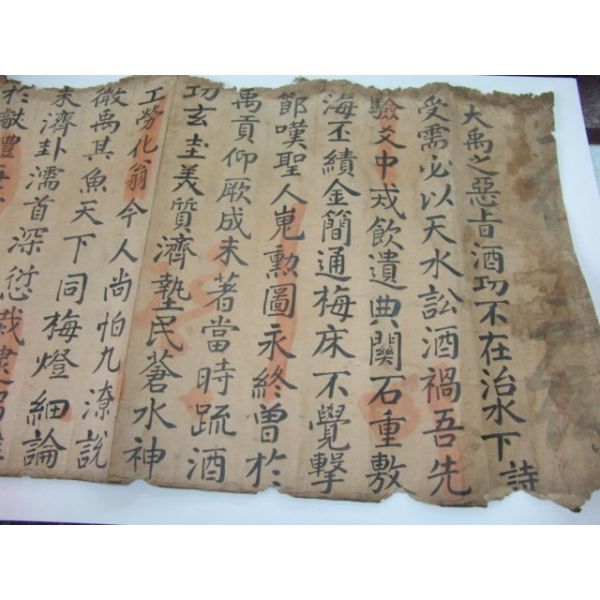 大禹之惡旨酒功不在治水下詩
受需必以天水訟酒禍吾先
驗爻中戎飲遺典關石重敷
海丕績金簡通梅床不覺擊
節嘆聖人嵬勳圖永終曾於
禹貢仰厥成未著當時疏酒
功玄圭美質濟墊民蒼水神
工勞化翁今人尚怕九潦説
微禹其魚天下同梅燈細論
未濟卦濡首深愆
於獻禮